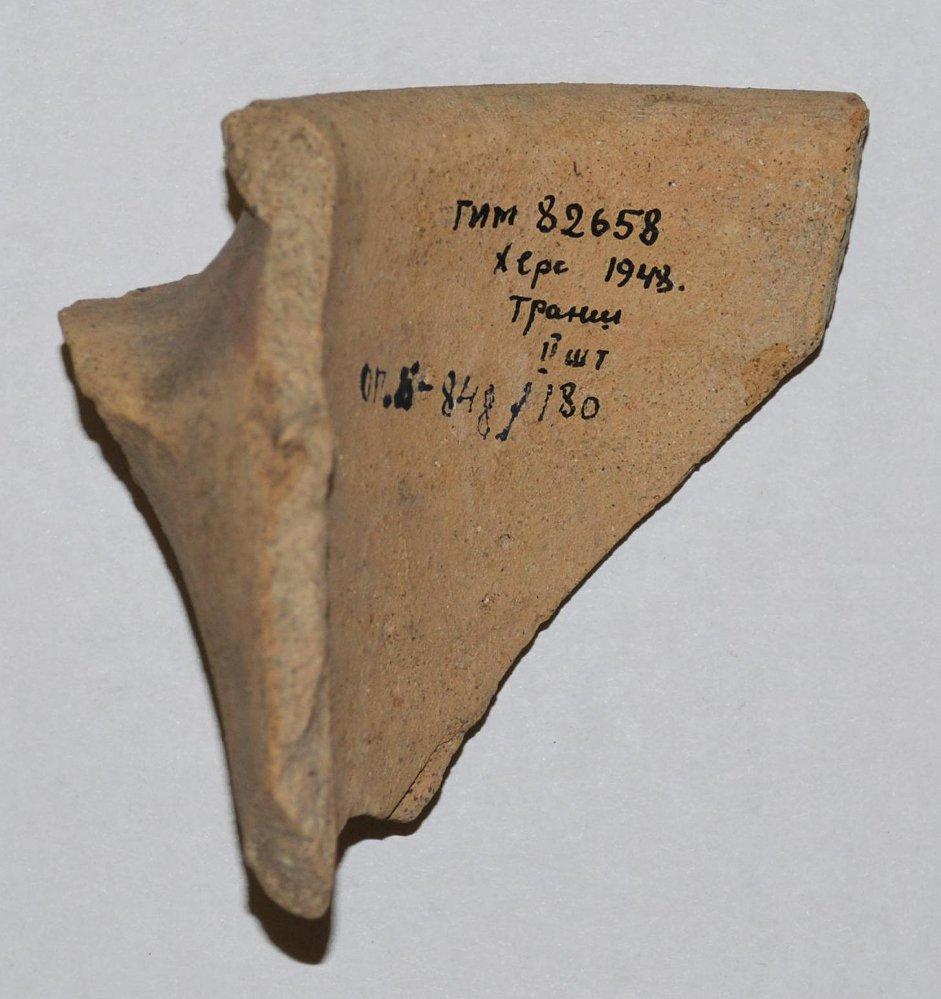 ГИМ 82658
Херс 1948.
Транш
II шт
оп. Б-848/180